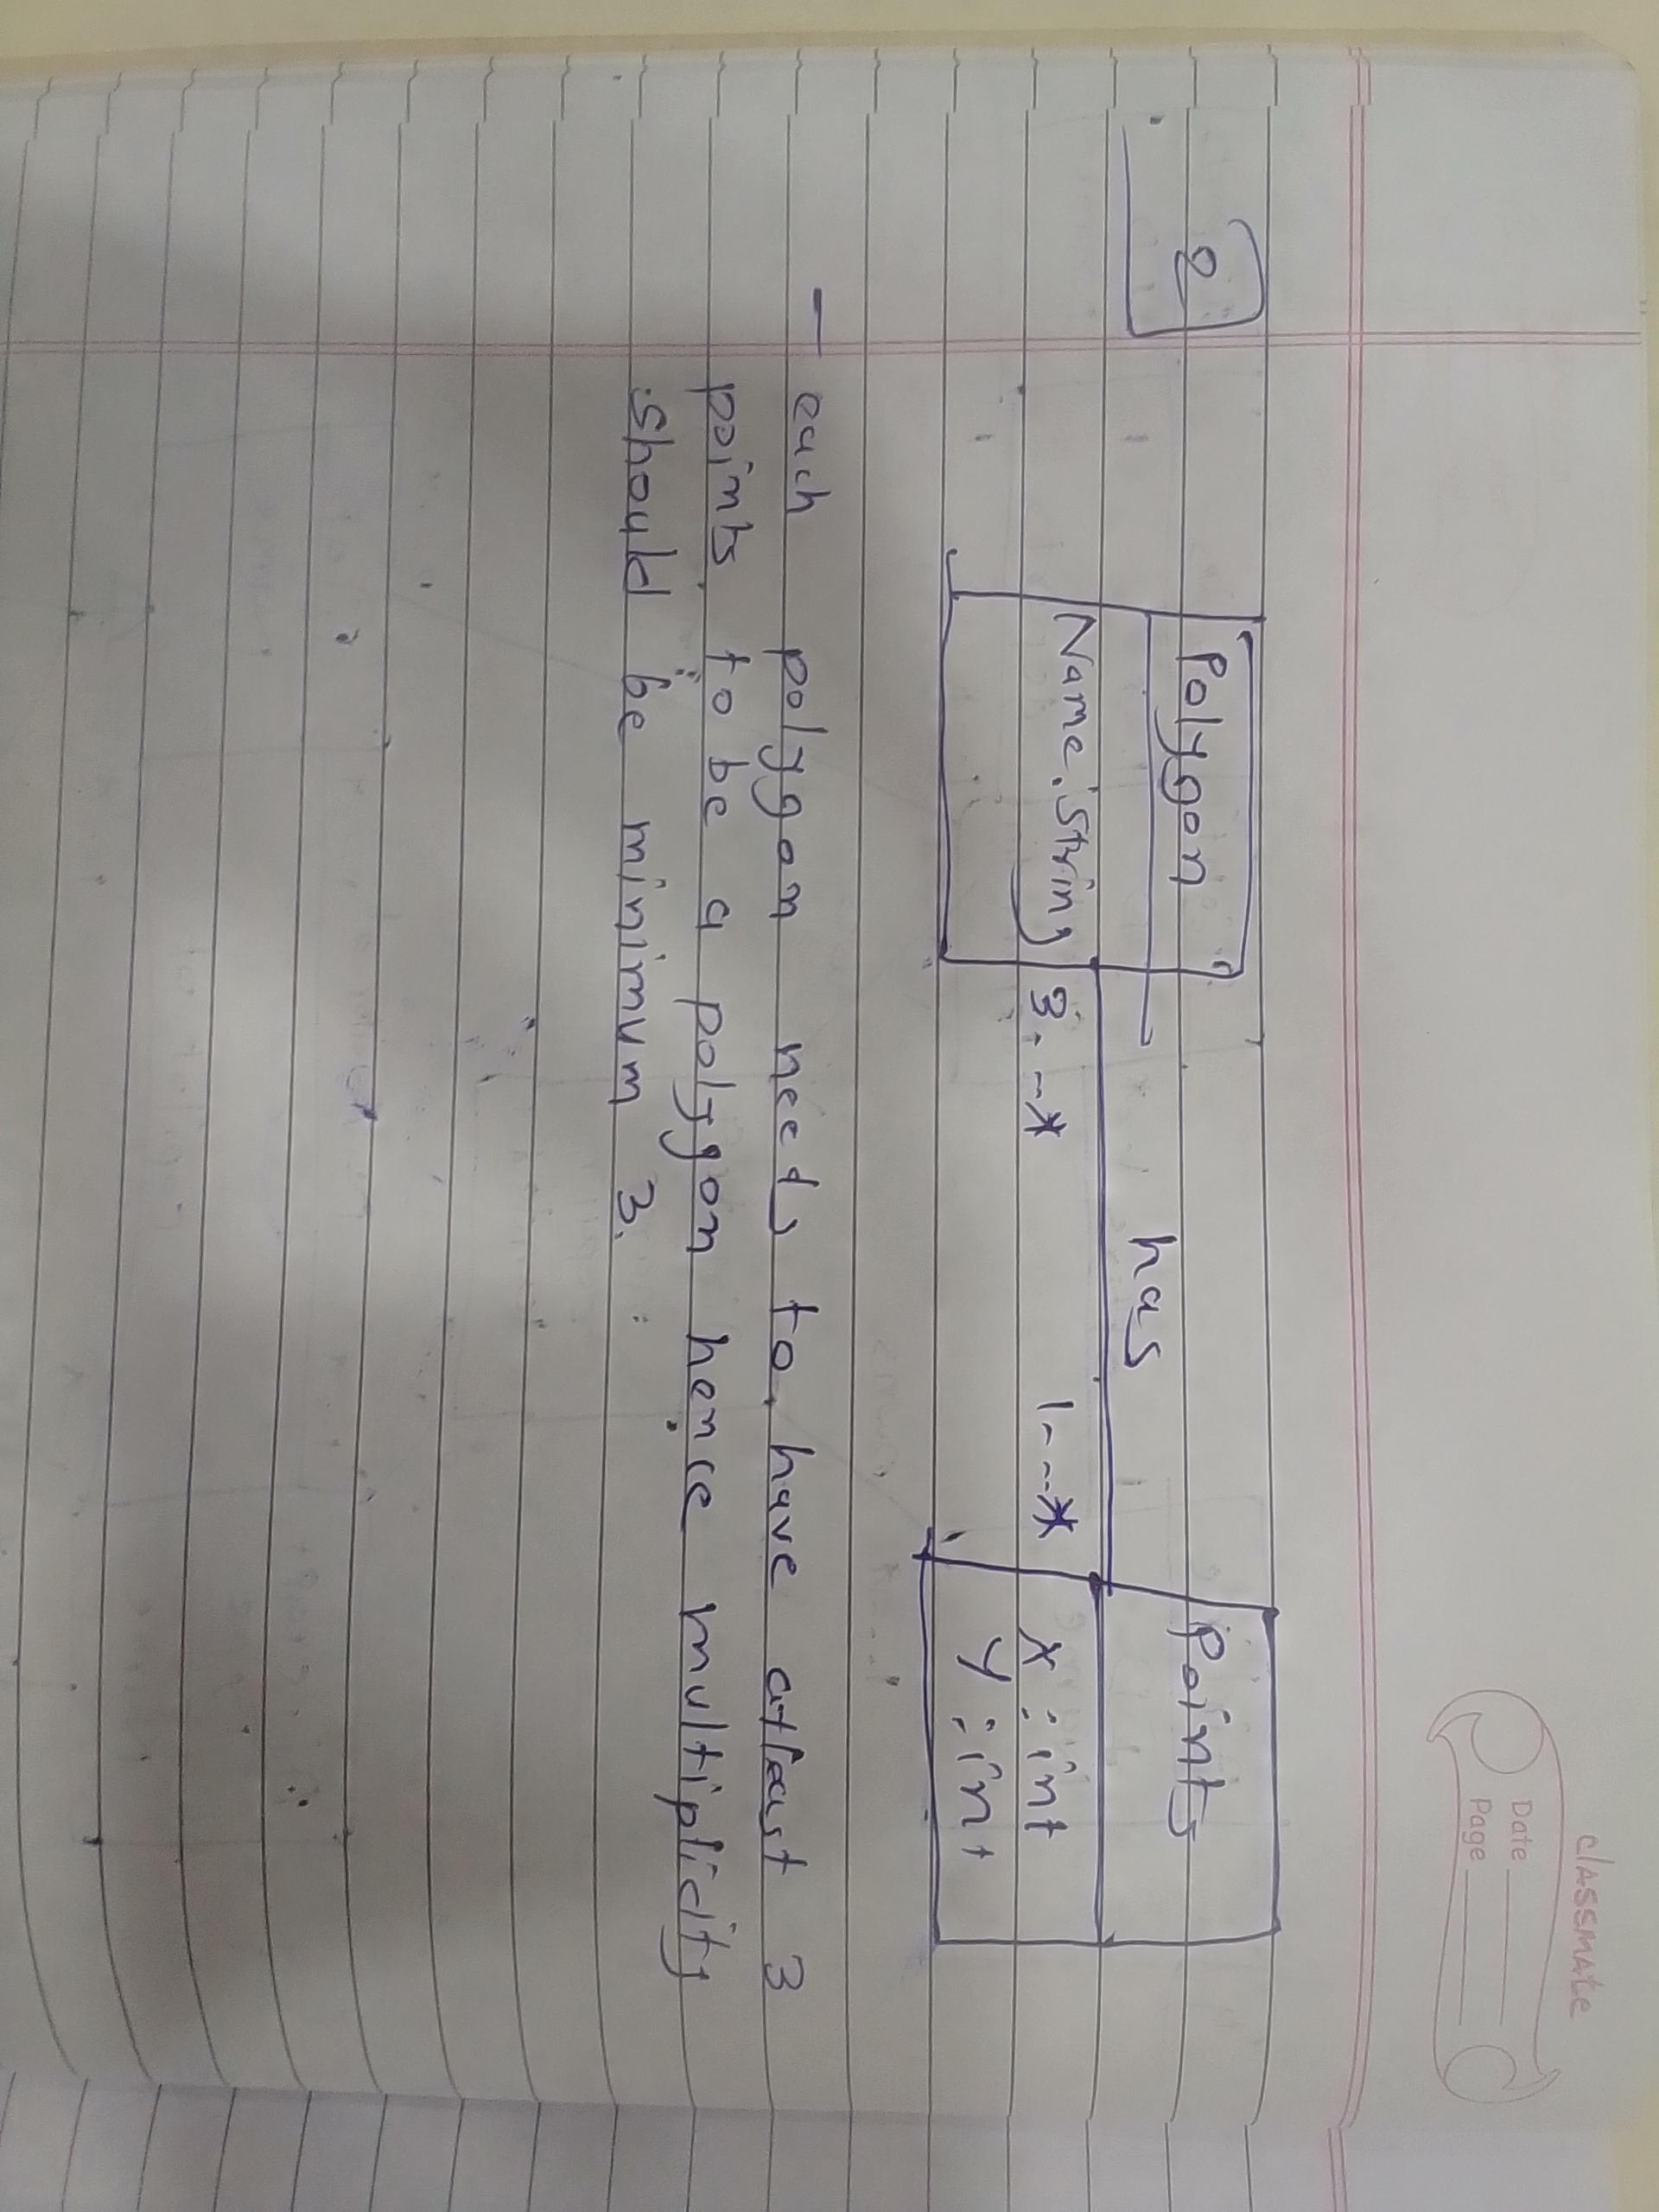 classmate
Date
Page
2
Polygon
Name:String
has
3...*
1...*
Points
x:int
y:int
- each polygon needs to have atleast 3
points to be a polygon hence multiplicity
should be minimum 3.